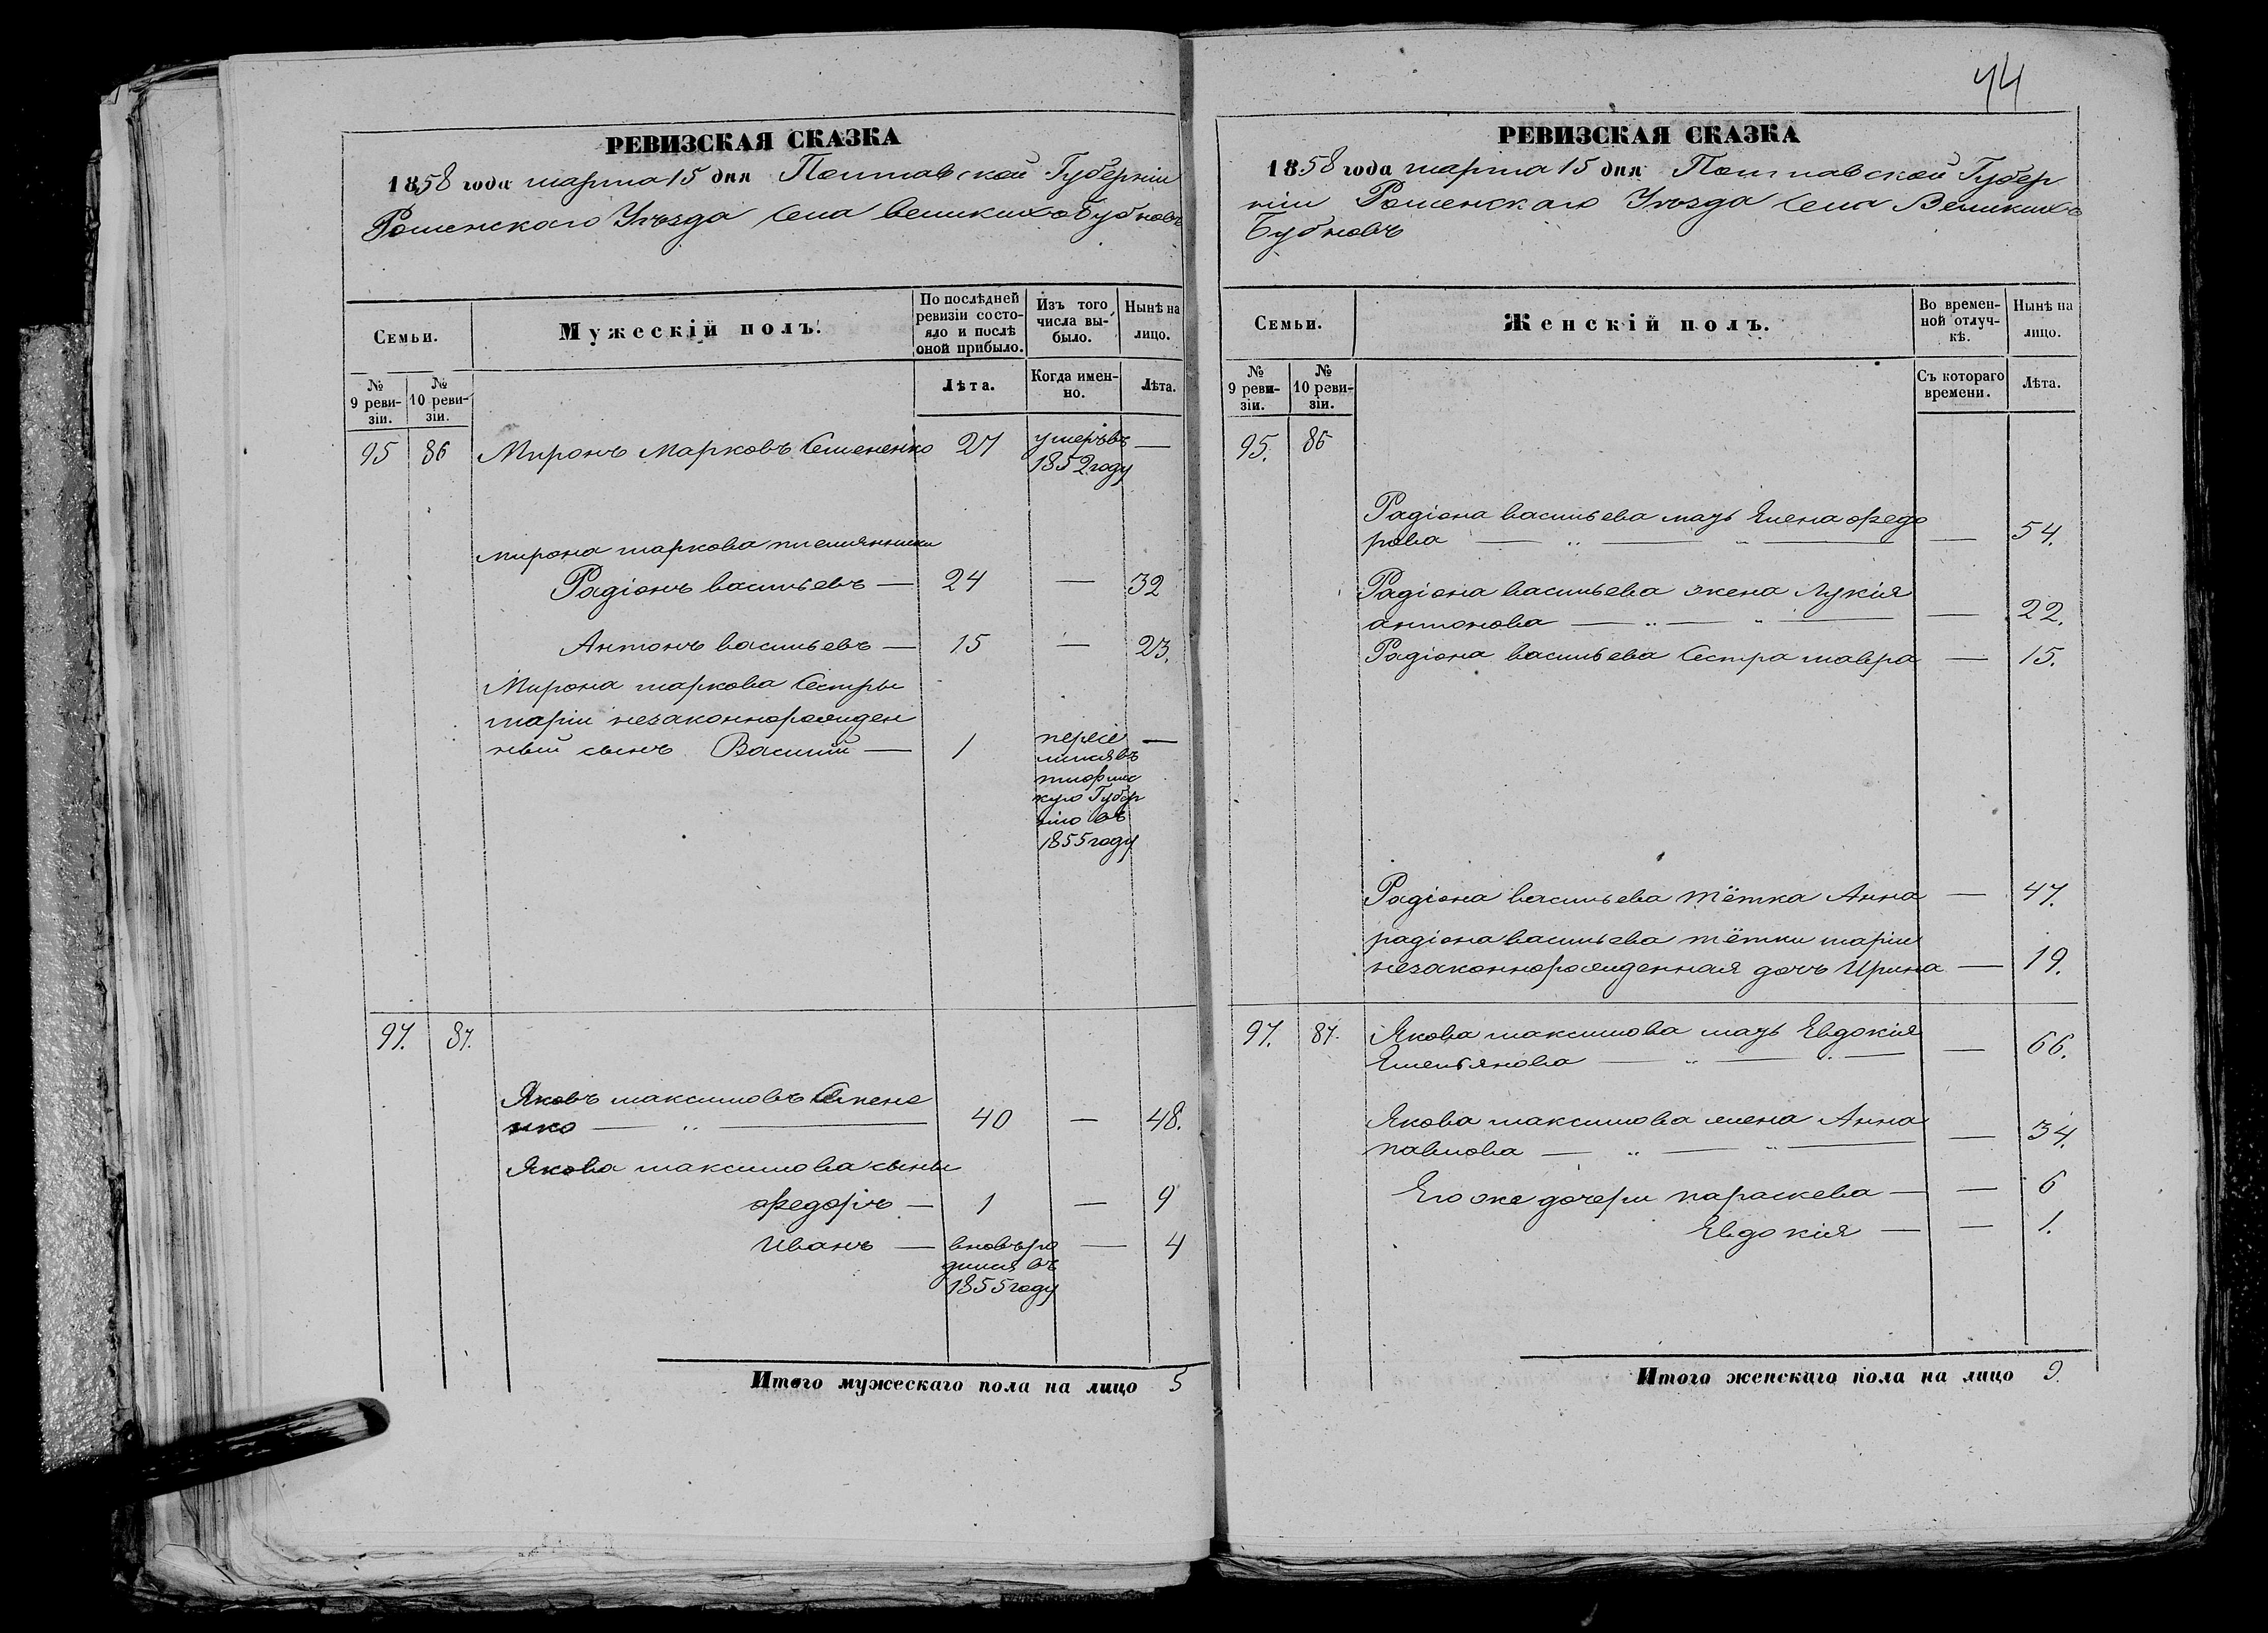 РЕВИЗСКАЯ СКАЗКА
1858 года марта 15 дня Полтавской Губерніи
Роменскаго Уѣзда Села великихъ Бубновъ
Семьи.
Мужескій полъ.
По послѣдней
ревизіи состо-
яло и послѣ
оной прибыло.
Изъ того
числа вы-
было.
Нынѣ на
лицо.
№
9 реви-
зіи.
№
10 реви-
зіи.
Лѣта.
Когда имен-
но.
Лѣта.
95 86 Миронъ Марковъ Семененко 27 умеръ въ —
1852 году
Мирона маркова племянники
Радіонъ васильевъ — 24 — 32
Антонъ васильевъ — 15 — 23.
Мирона маркова Сестры
маріи незаконнорожден
ный сынъ Василій — 1 пересе —
лился въ
кую Губер
нію въ
1855 году
97. 87.
Яковъ максимовъ Семене
нко — „ — 40 — 48.
Якова максимова сыны
федоръ — 1 — 9
Иванъ — вновь ро — 4
дился въ
1855 году
Итого мужескаго пола на лицо 5
44
РЕВИЗСКАЯ СКАЗКА
1858 года марта 15 дня Полтавской Губер
ніи Роменскаго Уѣзда Села Великихъ
Бубновъ
Семьи.
Женскій полъ.
Во времен-
ной отлуч-
кѣ.
Нынѣ на
лицо.
№
9 реви-
зіи.
№
10 реви-
зіи.
Съ котораго
времени.
Лѣта.
95. 86
Радіона васильева мать Елена федо
рова — „ — „ — — 54.
Радіона васильева жена Лукія
антонова — „ — „ — — 22.
Радіона васильева Сестра мавра — 15.
Радіона васильева тётка Анна — 47.
радіона васильева тётки маріи
незаконнорожденная дочь Ирина — 19.
97. 87. Якова максимова мать Евдокія
Емельянова — „ — „ — — 66.
Якова максимова жена Анна
павлова — „ — „ — — 34.
Его же дочери параскева — — 6
Евдокія — — 1.
Итого женскаго пола на лицо 9.